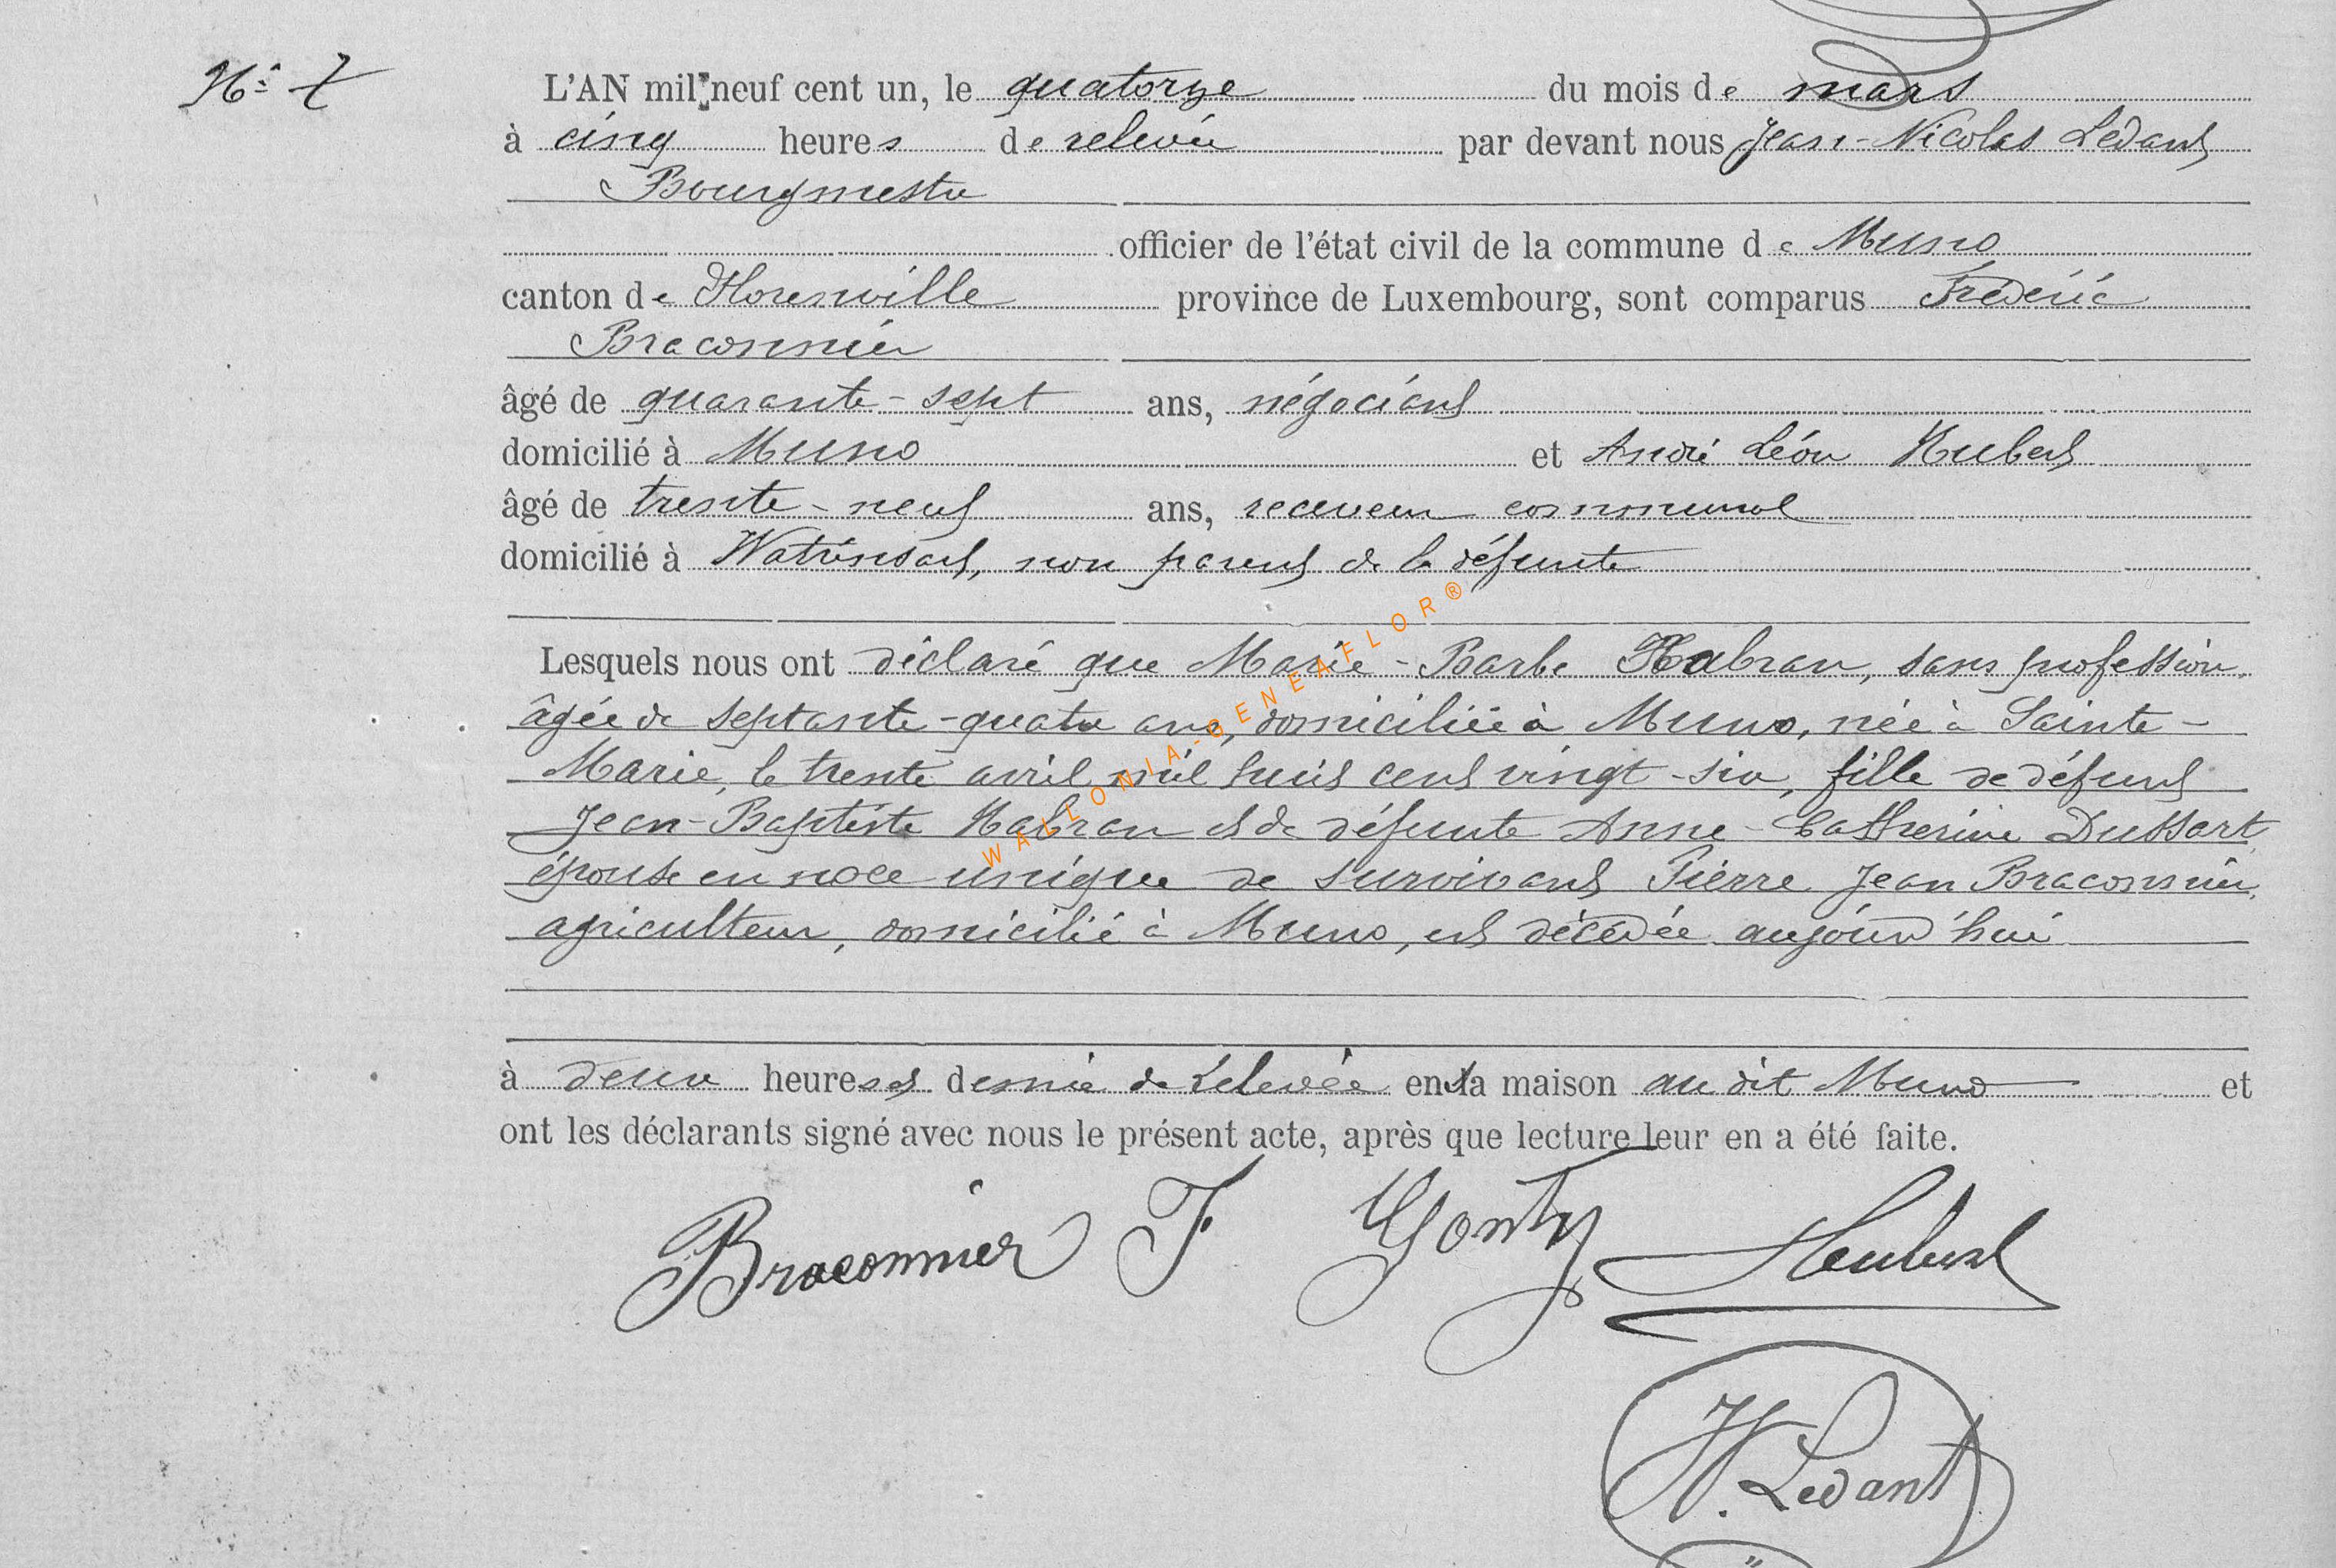 N° 7
L'AN mil neuf cent un, le quatorze du mois de mars
à cinq heures de relevée par devant nous Jean-Nicolas Ledant
Bourgmestre
officier de l'état civil de la commune de Muno
canton de Florenville province de Luxembourg, sont comparus Frédéric
Braconnier
âgé de quarante-sept ans, négociant
domicilié à Muno et André Léon Hubert
âgé de trente-neuf ans, receveur communal
domicilié à Watrinsart, non parent de la défunte
Lesquels nous ont déclaré que Marie-Barbe Habran, sans profession,
âgée de septante-quatre ans, domiciliée à Muno, née à Sainte-
Marie, le trente avril mil huit cent vingt-six, fille de défunt
Jean-Baptiste Habran et de défunte Anne-Catherine Dussart,
épouse en noce unique de survivant Pierre Jean Braconnier,
agriculteur, domicilié à Muno, est décédée aujourd'hui
à deux heures et demie de relevée en la maison au dit Muno et
ont les déclarants signé avec nous le présent acte, après que lecture leur en a été faite.
Braconnier F Gonty
N. Ledant
WALLONIA-GENEAFLOR®